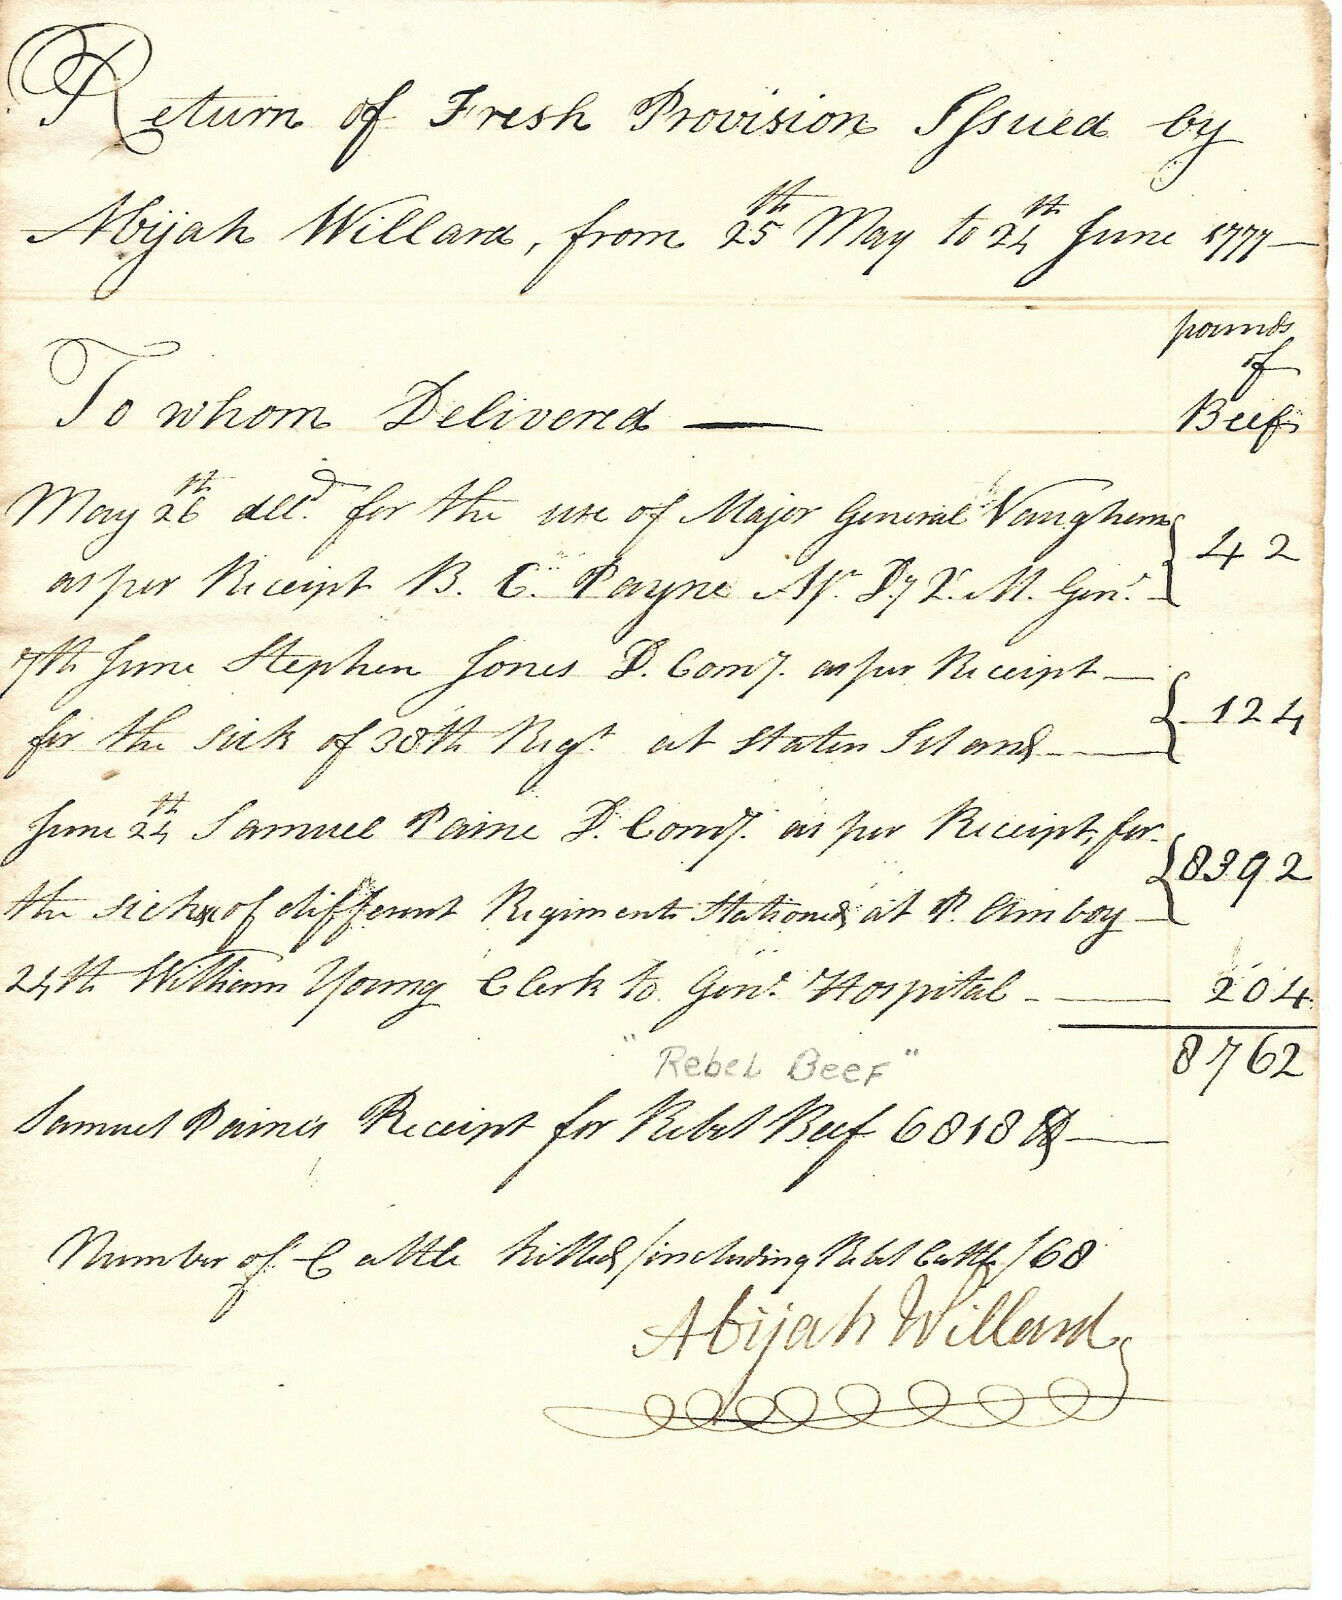 Return of Fresh Provision Issued by
Abijah Willard, from 25th May to 24th June 1777
pounds
of
Beef
To whom Delivered
May 26th dell.d for the use of Major General Vaughan
as per Receipt B. C. Payne Dy Q. M. Gen.l
42
7th June Stephen Jones D. Comy. as per Receipt
for the sick of 38th Regt. at Staten Island
124
June 24th Samuel Paine D. Comy. as per Receipt, for
the sick of different Regiments Stationed at P. Amboy
8392
24th William Young Clerk to Gen.l Hospital 204
8762
"Rebel Beef"
Samuel Paine's Receipt for Rebel Beef 6818 lb
Number of Cattle killed /including Rebel Cattle/ 68
Abijah Willard